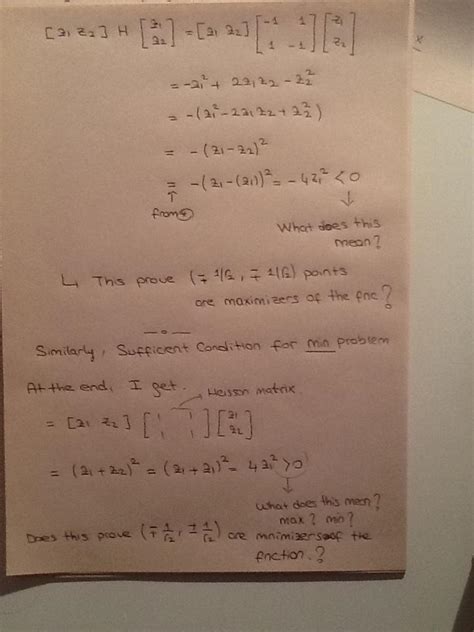 [z1 z2] H [z1 z2] = [z1 z2] [-1 1 1 -1] [z1 z2]
= -z1² + 2z1z2 - z2²
= -(z1² - 2z1z2 + z2²)
= -(z1-z2)²
= -(z1-(z1))² = -4z1² < 0
from
What does this
mean?
↳ This prove (∓ 1/√2, ∓ 1/√2) points
are maximizers of the fnc?
Similarly, Sufficient Condition for min problem
At the end, I get.
Heisson matrix
= [z1 z2] [1 1 1 1] [z1 z2]
= (z1+z2)² = (z1+z1)² = 4z1² > 0
What does this mean?
max? min?
Does this prove (∓ 1/√2, ± 1/√2) are minimizers of the
fnction.?